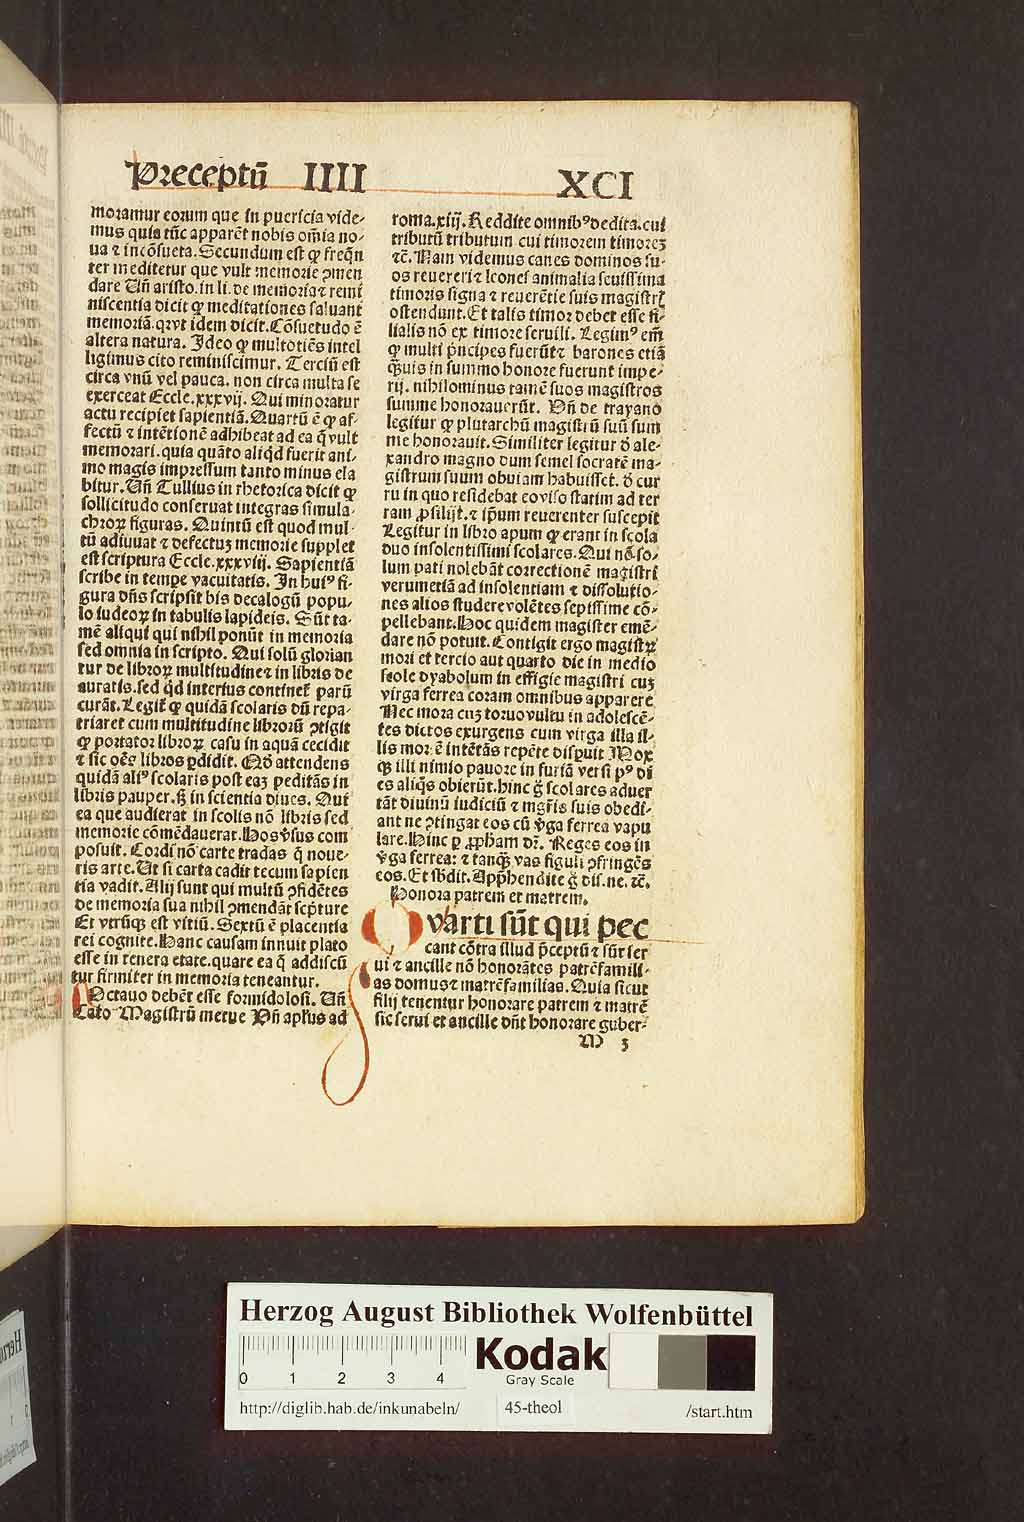 Preceptū IIII
XCI
moramur eorum que in puericia vide-
mus quia tūc apparēt nobis om̄ia no-
ua ⁊ incōsueta. Secundum est ꝙ freq̄n
ter meditetur que vult memorie ↄmen
dare Vn̄ aristo. in li. de memoria⁊ remi
niscentia dicit ꝙ meditationes saluant
memoriā. qꝛvt idem dicit. Cōsuetudo ē
altera natura. Ideo ꝙ multotiēs intel
ligimus cito reminiscimur. Terciū est
circa vnū vel pauca. non circa multa se
exerceat Eccle.xxxvij. Qui minoratur
actu recipiet sapientiā. Quartū ē ꝙ af-
fectū ⁊ intētionē adhibeat ad ea q̄ vult
memorari. quia quāto aliqd fuerit ani-
mo magis impressum tanto minus ela
bitur. Vn̄ Tullius in rhetorica dicit ꝙ
sollicitudo conseruat integras simula-
chroꝝ figuras. Quintū est quod mul-
tū adiuuat ⁊ defectuꝫ memorie supplet
est scriptura Eccle.xxxviij. Sapientiā
scribe in tempe vacuitatis. In huiꝰ fi-
gura dn̄s scripsit bis decalogū popu-
lo iudeoꝝ in tabulis lapideis. Sūt ta-
mē aliqui qui nihil ponūt in memoria
sed omnia in scripto. Qui solū glorian
tur de libroꝝ multitudine⁊ in libris de
auratis. sed qd̄ interius continet̄ parū
curāt. Legit̄ ꝙ quidā scolaris dū repa-
triaret cum multitudine librorū ↄtigit
ꝙ portator libroꝝ casu in aquā cecidit
⁊ sic oēs libros ꝑdidit. Qd̄ attendens
quidā aliꝰ scolaris post eaꝫ peditās in
libris pauper. sꝫ in scientia diues. Qui
ea que audierat in scolis nō libris sed
memorie cōmēdauerat. Hos v̄sus com
posuit. Cordi nō carte tradas q̄ noue-
ris arte. Ut si carta cadit tecum sapien
tia vadit. Alij sunt qui multū ↄfidētes
de memoria sua nihil ↄmendāt scpture
Et vtrūqꝫ est vitiū. Sextū ē placentia
rei cognite. Hanc causam innuit plato
esse in tenera etate. quare ea q̄ addiscū
tur firmiter in memoria teneantur.
Octauo debēt esse formidolosi. Vn̄
Cato Magistrū metue Vn̄ apl̄us ad
roma.xiij. Reddite omnibꝰ debita. cui
tributū tributum cui timorem timoreꝫ
⁊c̄. Nam videmus canes dominos su-
os reuereri⁊ leones animalia seuissima
timoris signa ⁊ reuerētie suis magistrꝭ
ostendunt. Et talis timor debet esse fi-
lialis nō ex timore seruili. Legimꝰ em̄
ꝙ multi p̄ncipes fuerūt⁊ barones etiā
qͣuis in summo honore fuerunt impe-
rij. nihilominus tamē suos magistros
summe honorauerūt. Vn̄ de trayano
legitur ꝙ plutarchū magistrū suū sum
me honorauit. Similiter legitur d̄ ale-
xandro magno dum semel socratē ma-
gistrum suum obuiam habuisset. d̄ cur
ru in quo residebat eo viso statim ad ter
ram ꝓsilijt. ⁊ ip̄um reuerenter suscepit
Legitur in libro apum ꝙ erant in scola
duo insolentissimi scolares. Qui nō so-
lum pati nolebāt correctionē magistri
verumetiā ad insolentiam ⁊ dissolutio-
nes alios studere volētes sepissime cō-
pellebant. Hoc quidem magister emē-
dare nō potuit. Contigit ergo magistꝝ
mori et tercio aut quarto die in medio
scole dyabolum in effigie magistri cuꝫ
virga ferrea coram omnibus apparere
Nec mora cuꝫ toruo vultu in adolescē-
tes dictos exurgens cum virga illa il-
lis mortē intētās repēte disꝑuit Mox
qꝫ illi nimio pauore in furiā versi pꝰ di
es aliqͦs obierūt. hinc g̊ scolares aduer
tāt diuinū iudiciū ⁊ mgr̄is suis obedi-
ant ne ↄtingat eos cū v̄ga ferrea vapu
lare. Hinc ꝑ ꝓpham dꝛ. Reges eos in
v̄ga ferrea: ⁊ tanqͣ vas figuli ↄfringēs
eos. Et sb̄dit. App̄hendite g̊ dis. ne. ⁊c̄.
Honora patrem et matrem.
Qvarti sūt qui pec
cant cōtra illud p̄ceptū ⁊ sūt ser
ui ⁊ ancille nō honorātes patrēfamili-
as domus⁊ matrēfamilias. Quia sicut
filij tenentur honorare patrem ⁊ matrē
sic serui et ancille dn̄t honorare guber-
M 3
Herzog August Bibliothek Wolfenbüttel
0 1 2 3 4
Kodak
Gray Scale
http://diglib.hab.de/inkunabeln/
45-theol
/start.htm